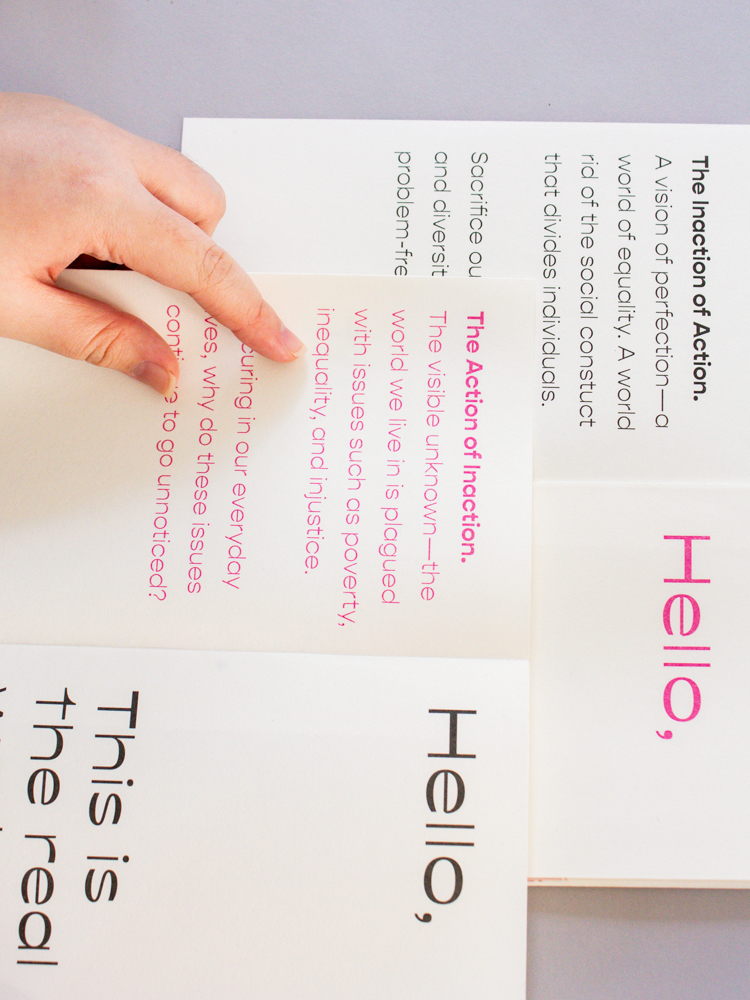 The Inaction of Action.
A vision of perfection—a
world of equality. A world
rid of the social constuct
that divides individuals.
Sacrifice
and
Hello,
The Action of Inaction.
The visible unknown—the
world we live in is plagued
with issues such as poverty,
inequality, and injustice.
in our everyday
why do these issues
to go unnoticed?
Hello,
This is
the real